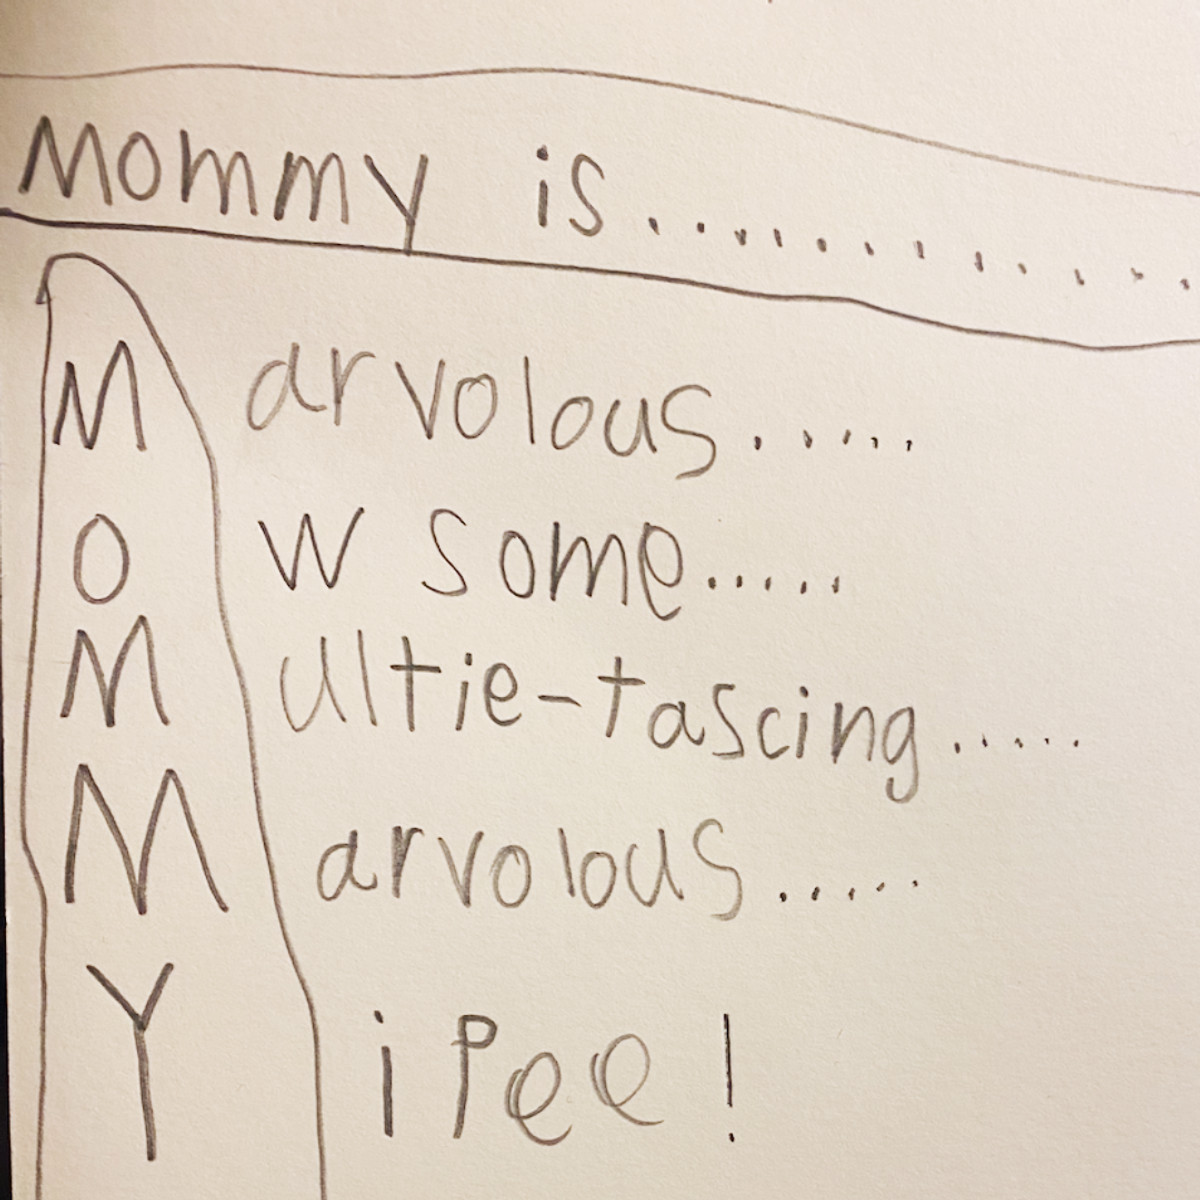 Mommy is.............
M arvolous.....
O wsome.....
M ultie-tascing.....
M arvolous.....
Y ipee!